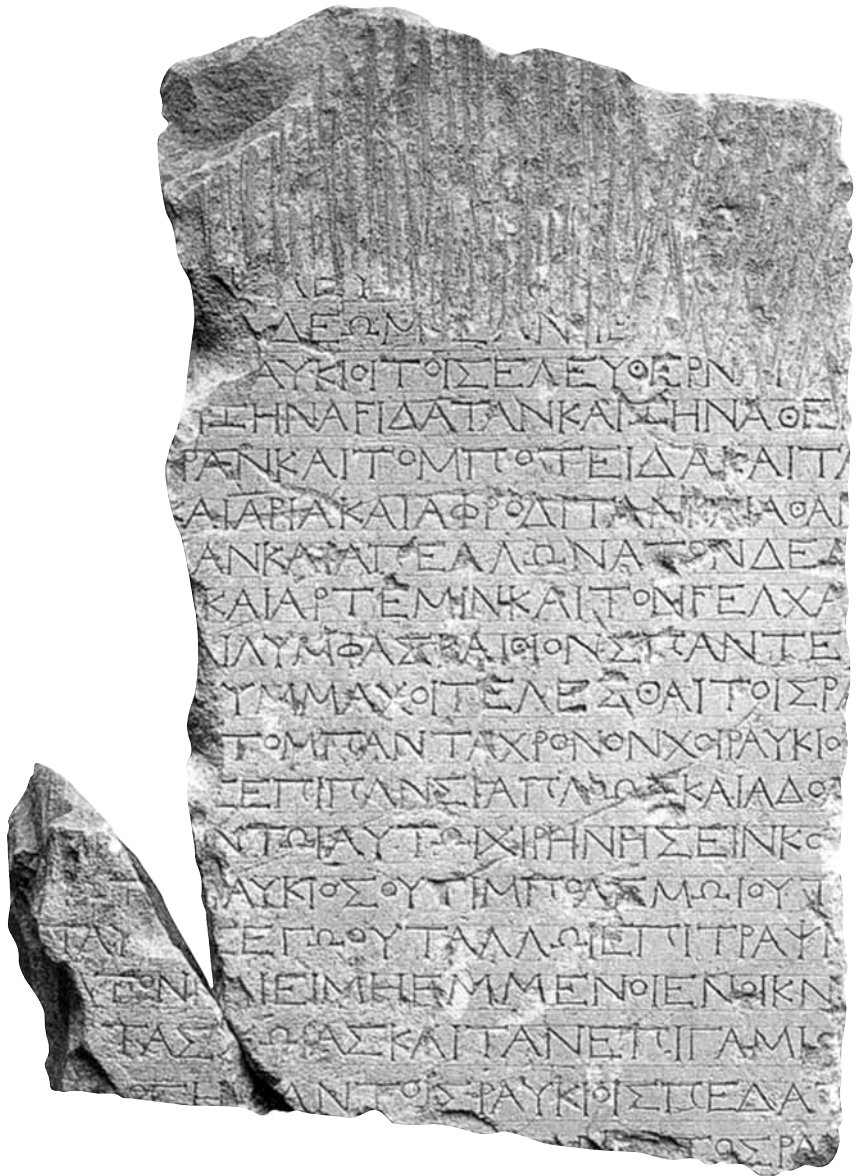 ΔΕΩΜ
ΑΥΚΙΟΙΤΟΙΣΕΛΕΥΘΕΡΝ
ΗΝΑϜΙΔΑΤΑΝΚΑΙΤΗΝΑΘΕ
ΡΑΝΚΑΙΤΟΜΠΟΤΕΙΔΑΚΑΙΤΑ
ΑΙΑΡΙΑΚΑΙΑΦΡΟΔΙΤΑΝΚΑΙΑΘΑΝ
ΑΝΚΑΙΑΠΕΛΛΩΝΑΤΟΝΔΕΛ
ΚΑΙΑΡΤΕΜΙΝΚΑΙΤΟΝϜΕΛΧΑ
ΑΙΛΥΜΦΑΣΚΑΙΘΙΟΝΣΠΑΝΤΕ
ΥΜΜΑΧΟΙΤΕΛΕΣΘΑΙΤΟΙΣΡΑ
ΤΟΜΠΑΝΤΑΧΡΟΝΟΝΧΟΙΡΑΥΚΙΟ
ΕΠΙΠΑΝΣΙΑΠΛΩΣΚΑΙΑΔΟ
ΝΤΩΙΑΥΤΩΙΧΙΡΗΝΡΗΣΕΙΝΚΟ
ΑΥΚΙΟΣΟΥΤΙΜΠΟΛΕΜΩΙΟΥΤ
ΕΓΩΟΥΤΑΛΛΩΙΕΠΙΤΡΑΨΙ
ΑΙΕΙΜΗΗΜΜΕΝΟΙΕΝΟΙΚΝ
ΤΑΣ ΑΣΚΑΙΤΑΝΕΠΙΓΑΜΙ
ΑΝΤΟΙΣΡΑΥΚΙΟΙΣΠΕΔΑ
ΤΟΣΡΑ